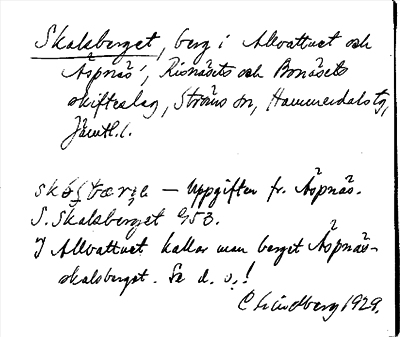 Skalsberget, berg i Allvattnet och
Åspnäs', Risnäsets och Bonäsets
skifteslag, Ströms sn, Hammerdals tg,
Jämtl. l.
— Uppgiften fr. Åspnäs.
S. Skalsberget 953.
I Allvattnet kallar man berget Åspnäs-
skalsberget. Se d. o.!
C Lindberg 1929.